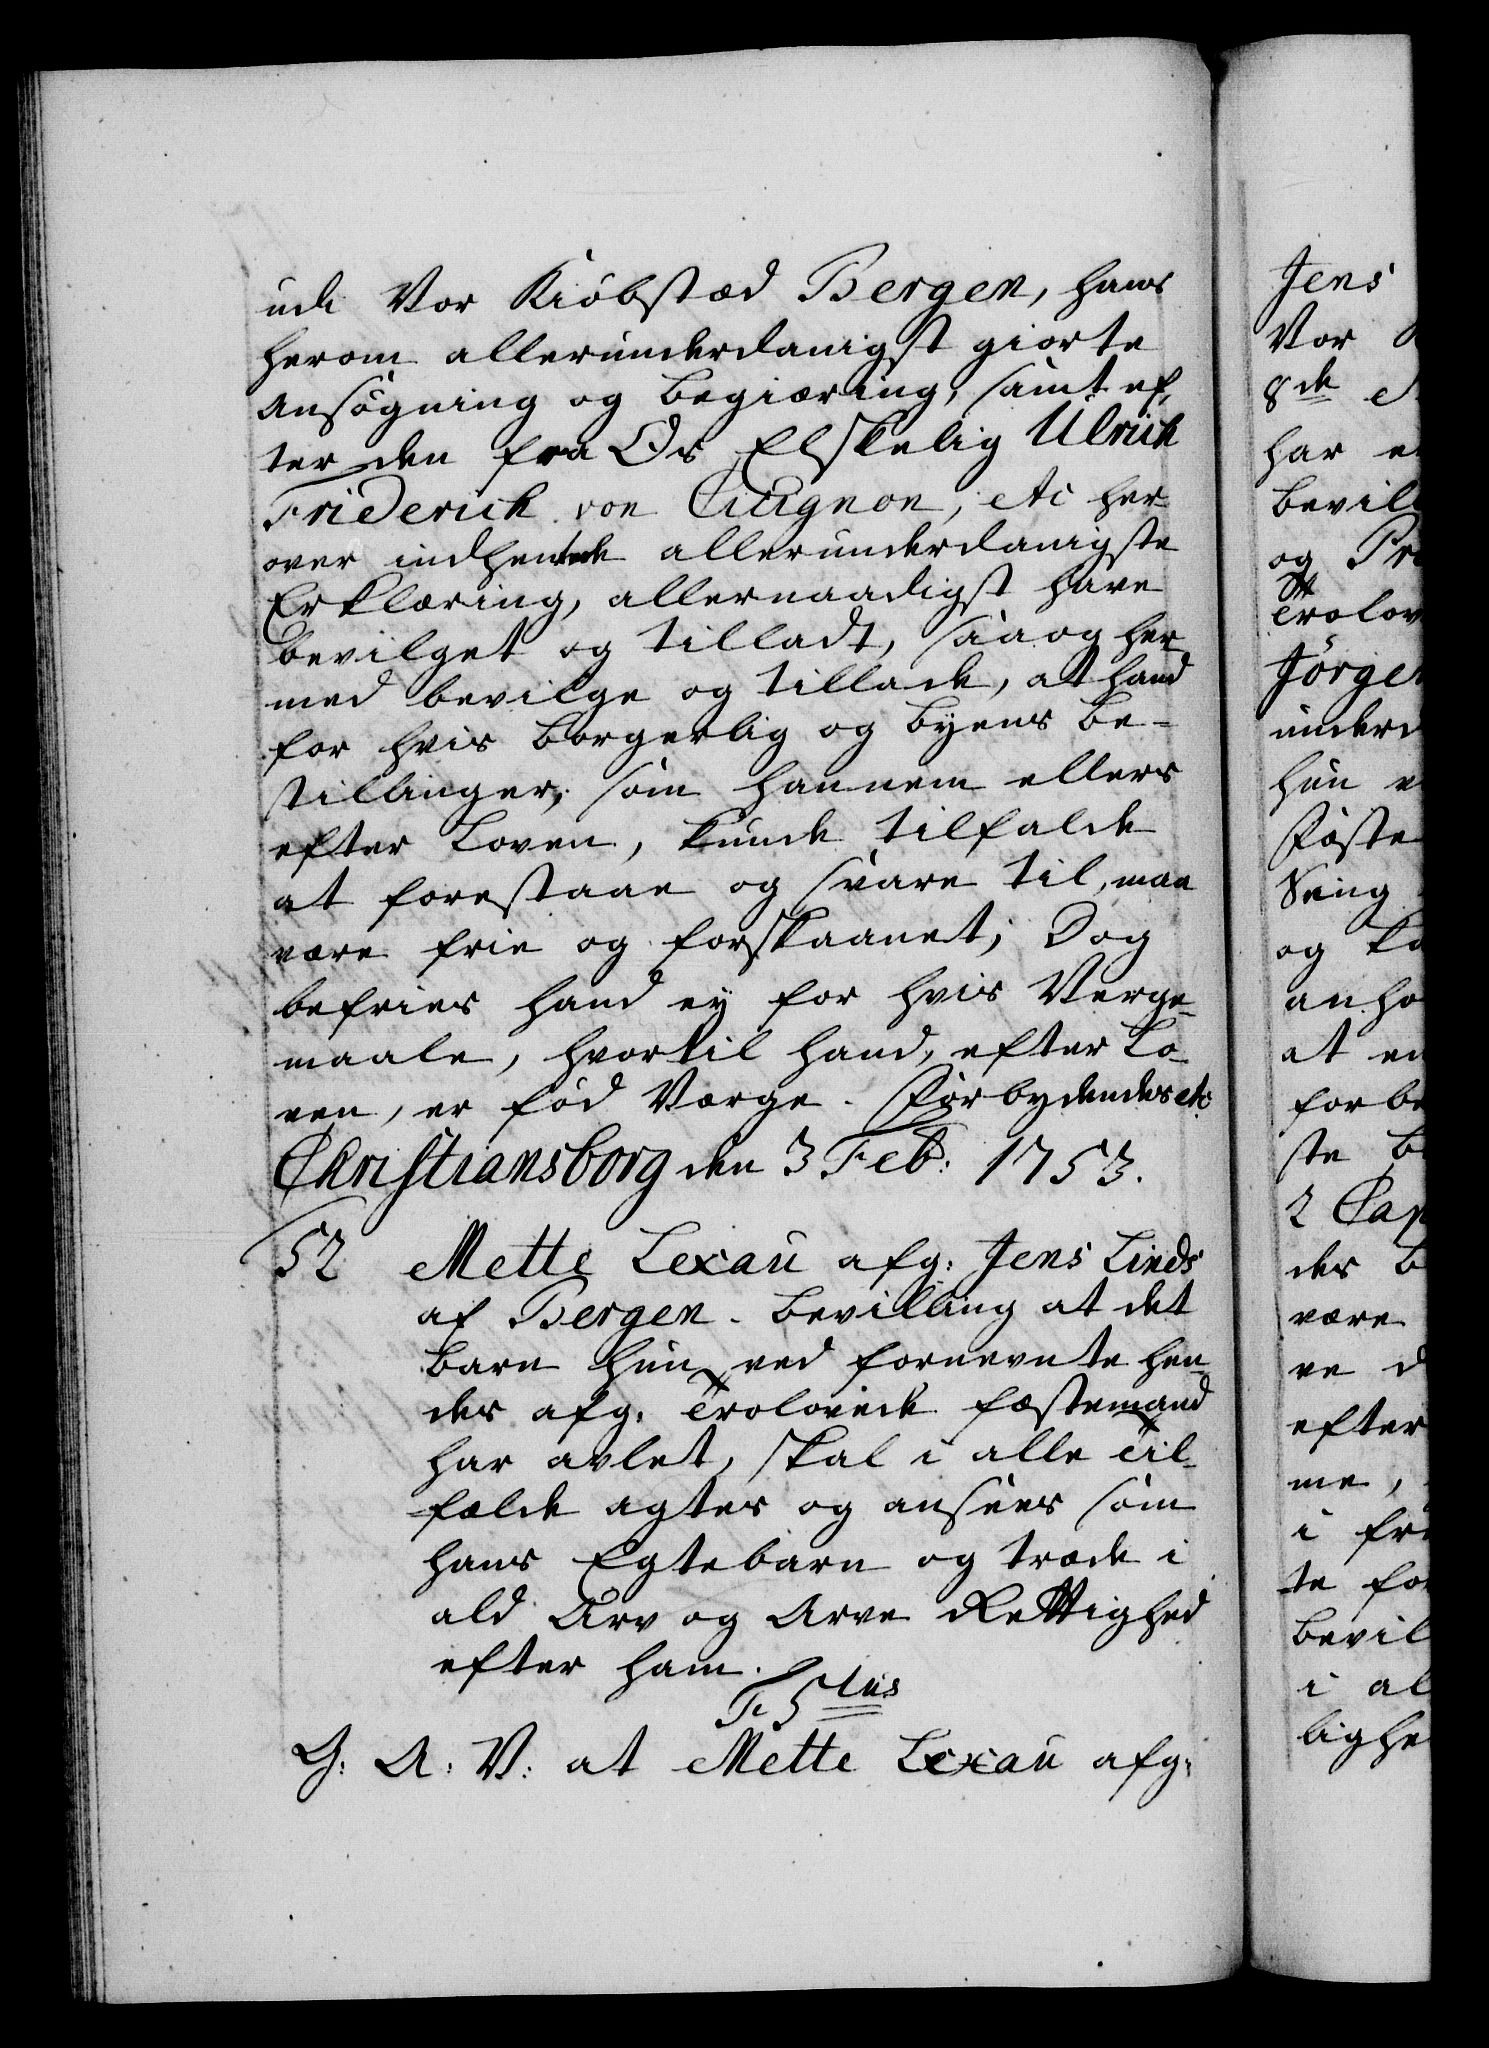 udi Vor Kiöbstæd Bergen, hans
herom allerunderdanigst giorte
Ansögning og Begiæring, samt ef-
ter den fra Os Elskelig Ulrich
Friderich von Cicignon, etc her-
over indhentede allerunderdanigste
Erklæring, allernaadigst have
bevilget og tilladt, saa og her-
med bevilge og tillade, at hand
for hvis Borgerlig og Byens Be-
stillinger, som hannem ellers
efter Loven, kunde tilfalde
at forestaae og svare til, maa
være frie og forskaanet; Dog
befries hand ey for hvis Verge-
maale, hvortil hand, efter Lo-
ven, er föd Værge. Forbydendes etc
Christiansborg den 3 Feb: 1753.
52 Mette Lexau afg: Jens Linds
af Bergen. Bevilling at det
Barn hun ved fornevnte hen-
des afg: Trolovede Fæstemand
har avlet, skal i alle Til-
fælde agtes og ansees som
hans Egtebarn og træde i
ald Arv og Arve Rettighed
efter ham.
F: 5tus
G: A: V: at Mette Lexau afg:
Jens
Vor
8de
har
bevil
og Pr
Trolov
Jörgen
underd
hun
Föste
Sving
og
anho
at
forbe
ste
2 Cap
des
være
ve d
efter
me,
i fr
te for
Bevil
i al
lighe